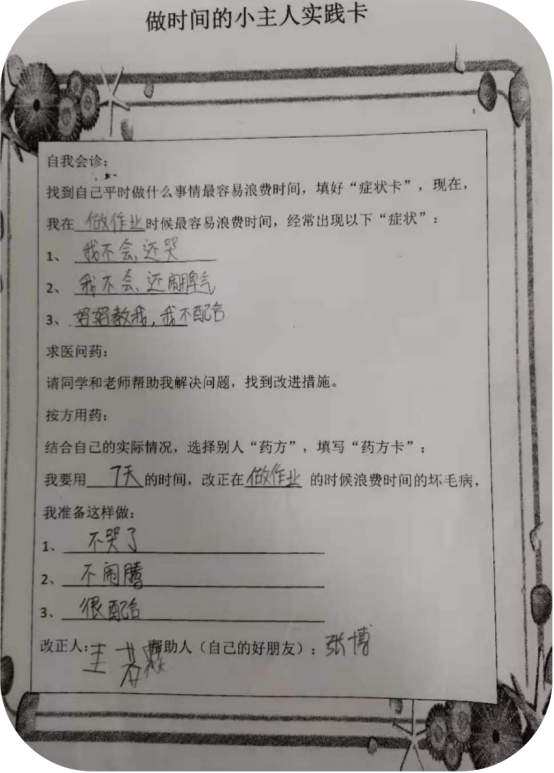 做时间的小主人实践卡
自我会诊:
找到自己平时做什么事情最容易浪费时间，填好“症状卡”，现在，
我在 做作业 时候最容易浪费时间，经常出现以下“症状”：
1、 我不会,还哭
2、 我不会,还闹脾气
3、 妈妈教我,我不配合
求医问药：
请同学和老师帮助我解决问题，找到改进措施。
按方用药：
结合自己的实际情况，选择别人“药方”，填写“药方卡”；
我要用 7天 的时间，改正在 做作业 的时候浪费时间的坏毛病，
我准备这样做：
1、 不哭了
2、 不闹腾
3、 很配合
改正人: 王若 帮助人（自己的好朋友）：张博